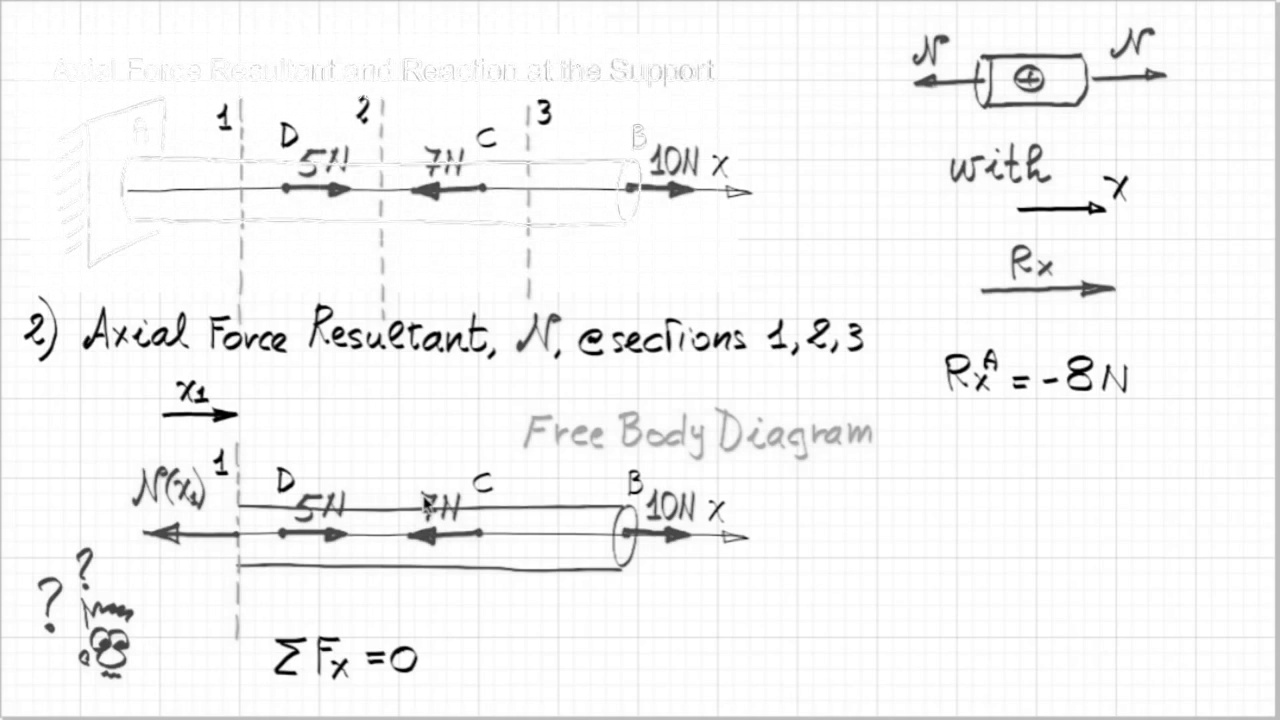 Axial Force Resultant and Reaction at the Support
N N
1 2 3
A D 5N 7N C B 10N x
with
x
Rx
2) Axial Force Resultant, N, @sections 1,2,3
Rx^A = -8N
x1
Free Body Diagram
1
N(x1) D 5N 7N C B 10N x
? ?
ΣFx = 0